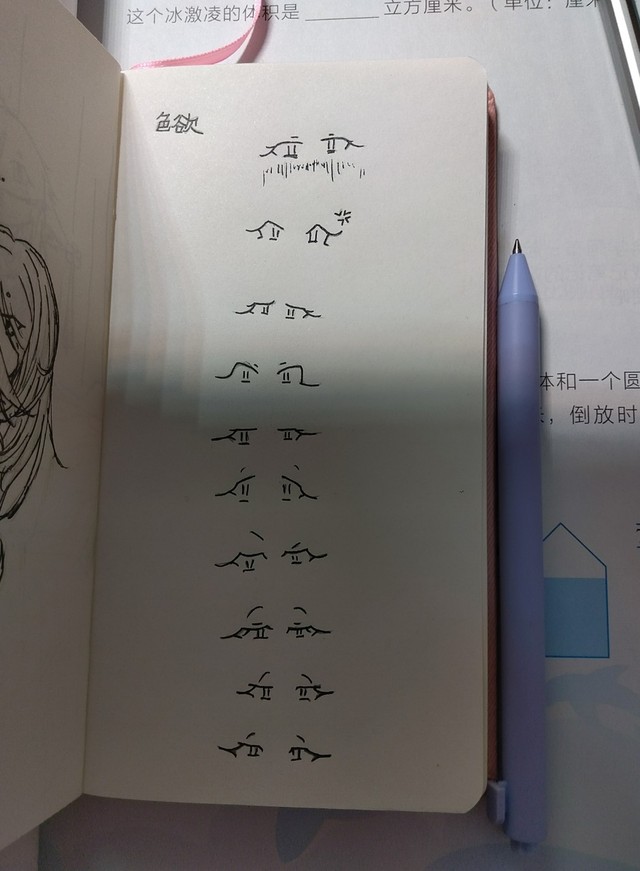 这个冰激凌的体积是________立方厘米。（单位：厘米
色欲
体和一个圆
，倒放时